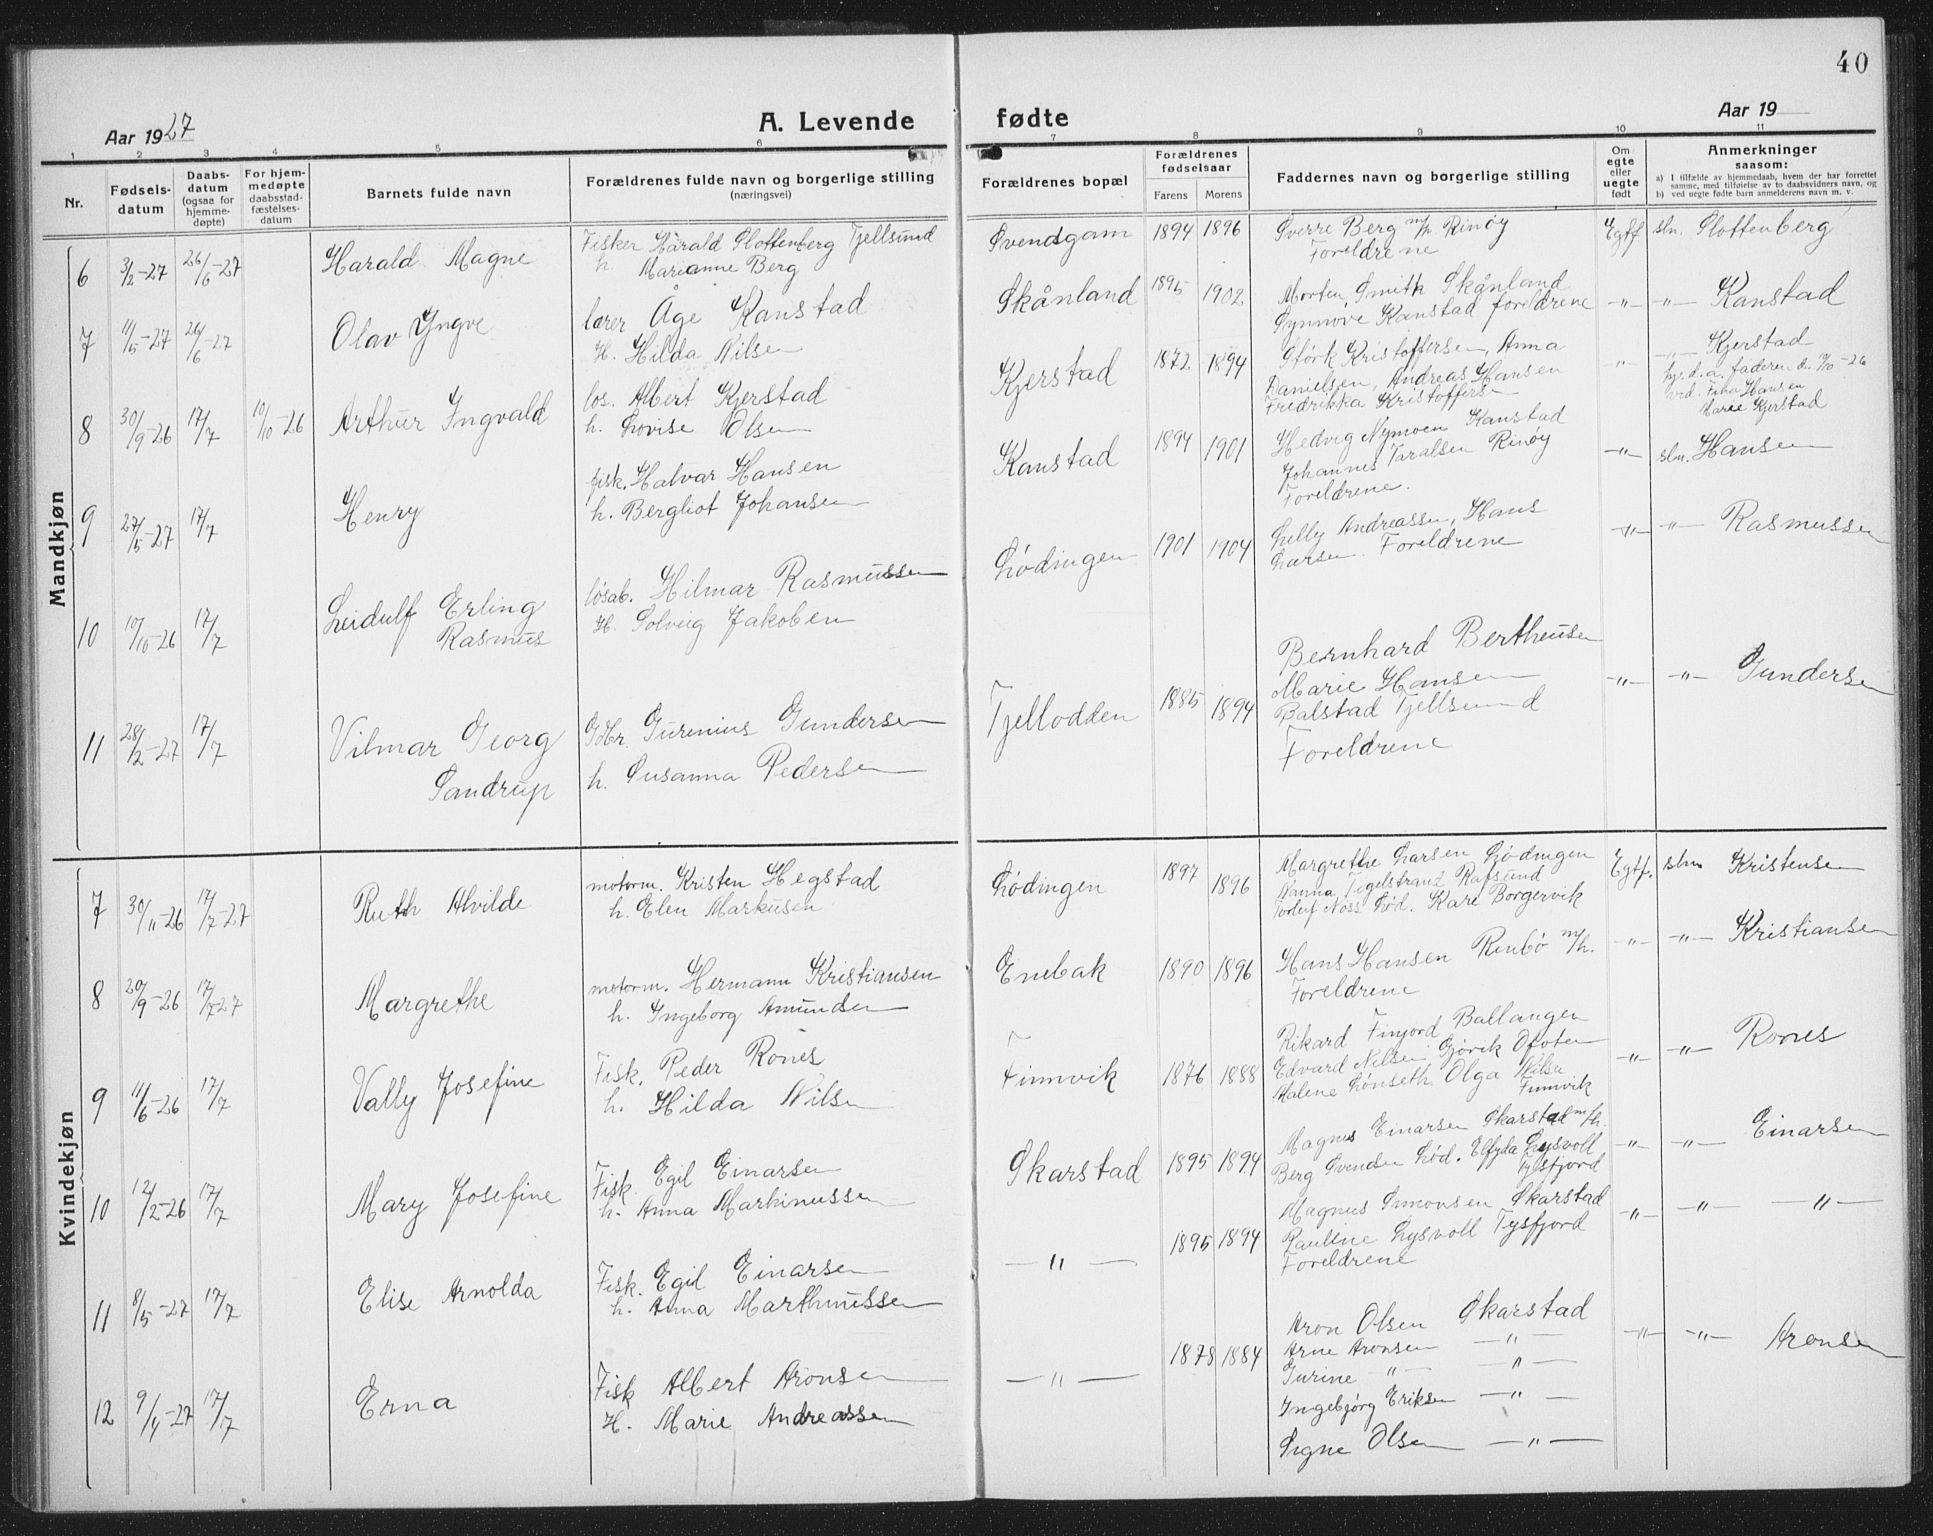 40
Aar 1927 A. Levende fødte Aar 19
1 2 3 4 5 6 7 8 9 10 11
Nr.
Fødsels-
datum
Daabs-
datum
(ogsaa for
hjemme-
døpte)
For hjem-
medøpte
daabsstad-
fæstelses-
datum
Barnets fulde navn
Forældrenes fulde navn og borgerlige stilling
(næringsvei)
Forældrenes bopæl
Forældrenes
fødselsaar
Farens Morens
Faddernes navn og borgerlige stilling
Om
egte
eller
uegte
født
Anmerkninger
saasom:
a) I tilfælde av hjemmedaab, hvem der har forrettet
samme, med tilføielse av to daabsvidners navn, og
b) ved uegte fødte barn anmelderens navn m. v.
Mandkjøn
6 3/2-27 26/6-27 Harald Magne
Fisker Harald Slottenberg Tjellsund
h. Marianne Berg
Svendsgam 1894 1896
Sverre Berg m/h Rinøy
Foreldrene
Egtf. sln. Slottenberg
7 11/5-27 26/6-27 Olav Yngve
lærer Åge Kanstad
H. Hilda Nilsen
Skånland 1895 1902
Morten Smith Skånland
Synnøve Kanstad foreldrene
-"- -"- Kanstad
8 30/9-26 17/7 10/10-26 Arthur Ingvald
los. Albert Kjerstad
h. Lovise Olsen
Kjerstad 1872 1894
Størk Kristoffersen, Anna
Danielsen, Andreas Hansen
Fredrikka Kristoffersen
-"- -"- Kjerstad
hj. d. a. faderen d. 10/10-26
vid. Hansen
Marie Kjerstad
9 27/5-27 17/7 Henry
fisk. Halvar Hansen
h. Bergliot Johansen
Kanstad 1894 1901
Hedvig Nymoen Kanstad
Johannes Taralsen Rinøy
Foreldrene.
-"- sln. Hansen
10 10/10-26 17/7 Leidulf Erling
Rasmus
løsab. Hilmar Rasmussen
H. Solveig Jakobsen
Lødingen 1901 1904
Lelly Andreassen, Hans
Larsen. Foreldrene
-"- -"- Rasmussen
11 28/2-27 17/7 Vilmar Georg
Sandrup
Gbr. Gurenius Gundersen
h. Susanna Pedersen
Tjellodden 1885 1894
Bernhard Bertheusen
Marie Hansen
Balstad Tjellsund
Foreldrene
-"- -"- Gundersen
Kvindekjøn
7 30/11-26 17/7-27 Ruth Alvilde
motorm. Kristen Hegstad
h. Elen Markusen
Lødingen 1897 1896
Margrethe Larsen Lødingen
Nanna Tigelstrand Rafsund
Torleif Noss Lød. Kare Borgervik
Egtf. sln Kristensen
8 20/9-26 17/7-27 Margrethe
motorm. Hermann Kristiansen
h. Ingeborg Amundsen
Enebak 1890 1896
Hans Hansen Rinbø m/h.
Foreldrene
-"- -"- Kristiansen
9 11/6-26 17/7 Vally Josefine
Fisk. Peder Rones
h. Hilda Nilsen
Finnvik 1876 1888
Rikard Finjord Ballangen
Edvard Nilsen Gjørvik Ofoten
Malene Lønseth. Olga Nilsen
Finnvik
-"- -"- Rones
10 12/2-26 17/7 Mary Josefine
Fisk Egil Einarsen
h. Anna Marhinussen
Skarstad 1895 1894
Magnus Einarsen Skarstad m/h.
Berg Svendsen Lød. Elfyda Lysvoll
Tysfjord
-"- -"- Einarsen
11 8/5-27 17/7 Elise Arnolda
Fisk. Egil Einarsen
h. Anna Marthinussen
-"- 1895 1894
Magnus Simonsen Skarstad
Pauline Lysvoll Tysfjord
Foreldrene
-"- -"- -"-
12 9/4-27 17/7 Erna
Fisk Albert Aronsen
H. Marie Andreassen
-"- 1878 1884
Aron Olsen Skarstad
Arne Aronsen -"-
Gurine -"- -"-
Ingebjørg Eriksen -"-
Signe Olsen -"-
-"- -"- Aronsen